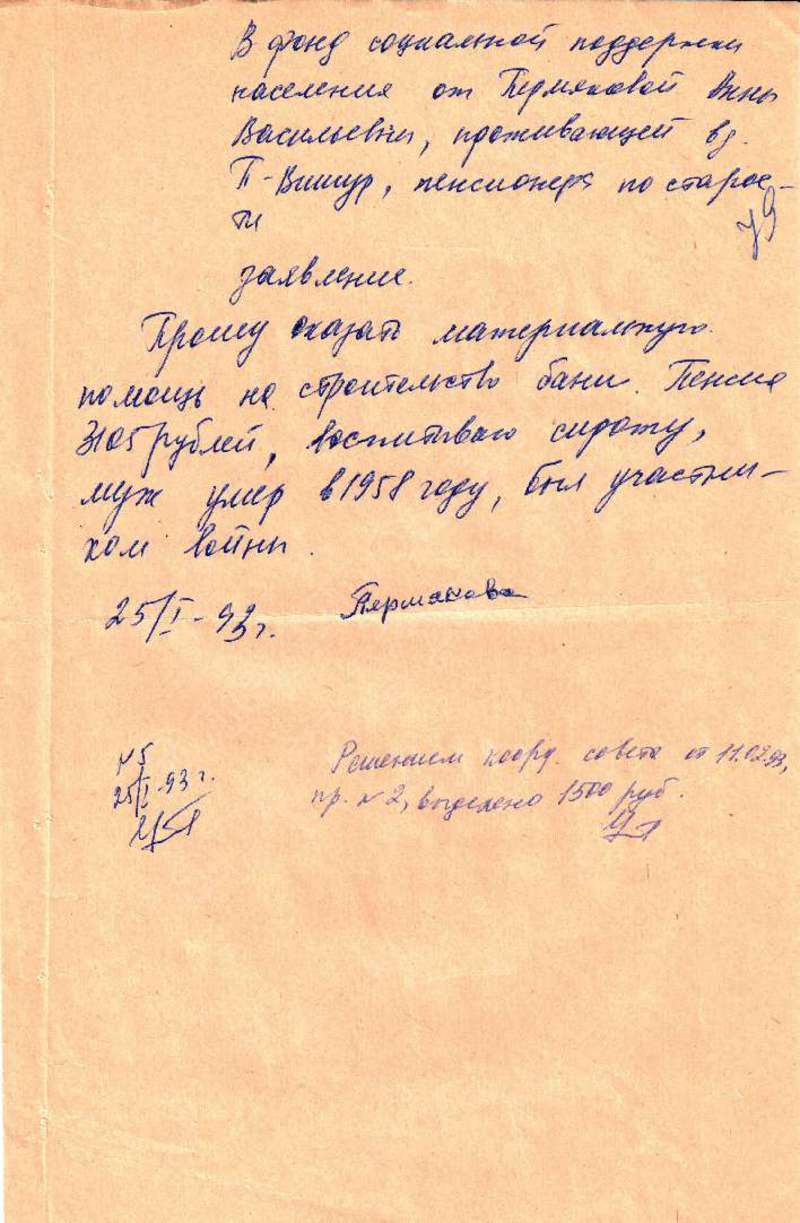 В фонд социальной поддержки
населения от Пермяковой Анны
Васильевны, проживающей в д.
П-Вишур, пенсионера по старос-
ти
79
заявление.
Прошу оказать материальную
помощь на строительство бани. Пенсия
3105 рублей, воспитываю сироту,
муж умер в 1958 году, был участни-
ком войны.
25/I-93 г.
Пермякова
N 5
25/I-93 г.
Решением коорд. совета от 11.02.93,
пр. N 2, выделено 1500 руб.